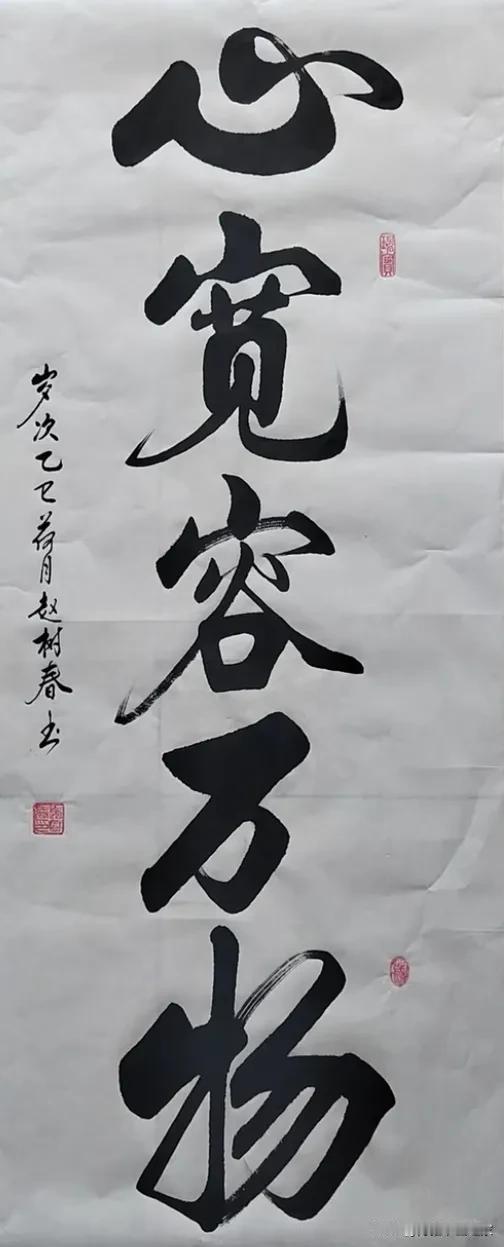 心宽容万物
岁次乙巳荷月赵树春书